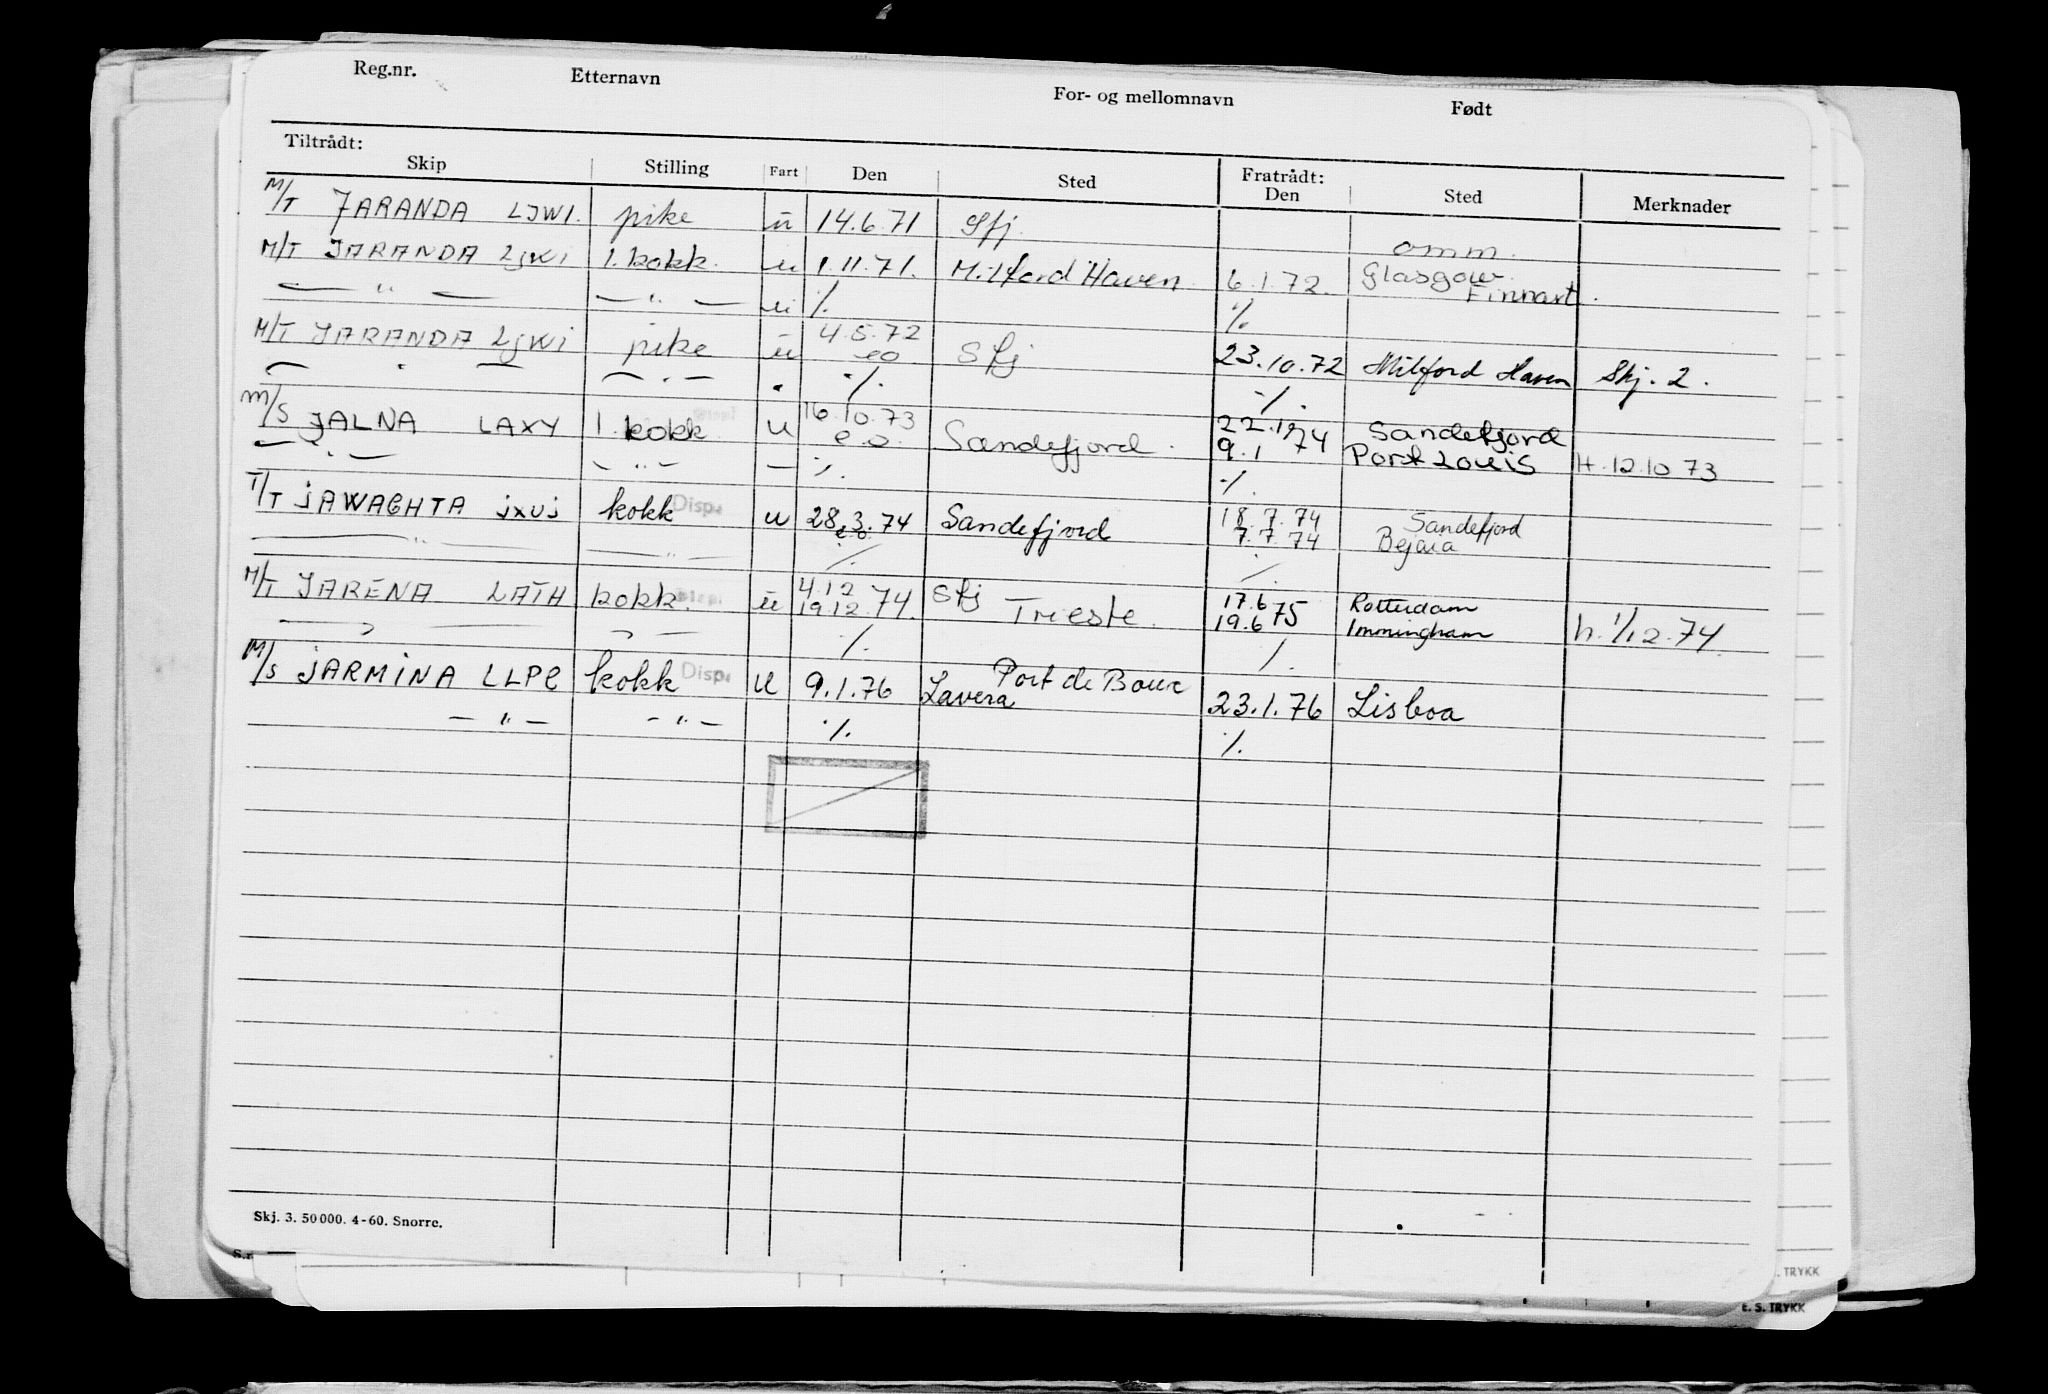 Reg.nr. Etternavn For- og mellomnavn Født
Tiltrådt: Fratrådt:
Skip Stilling Fart Den Sted Den Sted Merknader
M/T JARANDA LJWI. pike ū 14.6.71 Sfj. omm.
M/T JARANDA LJWI 1. kokk. u 1.11.71. Milford Haven. 6.1.72. Glasgow. Finnart.
— " — — " — u ./. ./.
M/T JARANDA LJWI pike ū 4.5.72 eo Sfj 23.10.72 Milford Haven Skj. 2.
— . — — . — . ./. ./.
M/S JALNA LAXY 1. kokk u 16.10.73 e.o. Sandefjord. 22.1 74 Sandefjord
9.1 74 Port Louis H.12.10 73
— . — — " — — ./. ./.
T/T JAWAGHTA JXUJ kokk Disp. u 28.3.74 e.o. Sandefjord 18.7.74 Sandefjord
7.7.74 Bejaia
— " — — " — ./. ./.
M/T JARENA LATH kokk. ū 4.12 Sfj 17.6 75 Rotterdam
19.12.74. Trieste. 19.6 Immingham h. 1/12.74.
./. ./.
M/S JARMINA LLPE kokk Disp. u 9.1.76 Port de Bouc Lavera 23.1.76 Lisboa
— " — — " — ./. ./.
Skj. 3. 50 000. 4-60. Snorre.
. TRYKK
E. S. TRYKK